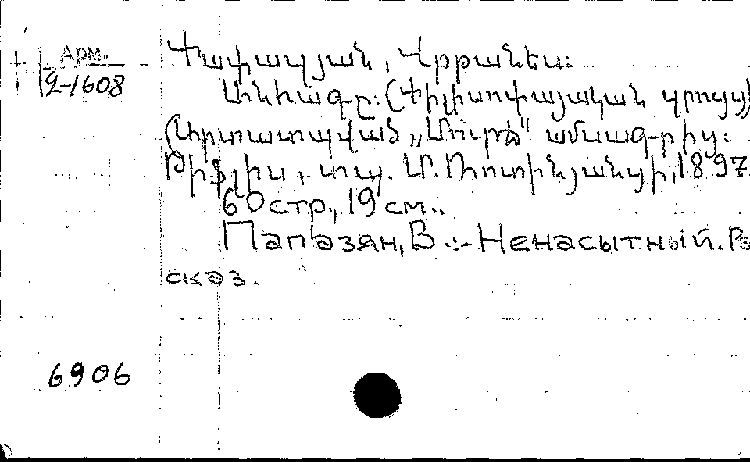 Арм.
2-1608
Փափազյան, Վրթանես:
Անհագը: (Փիլիսոփայական զրույց)
Արտատպված „Մուրճ" ամսագրից:
Թիֆլիս, տպ. Մ. Ռոտինյանցի, 1897.
60 стр., 19 см..
Папазян, В :- Ненасытный. Ра
сказ.
6906